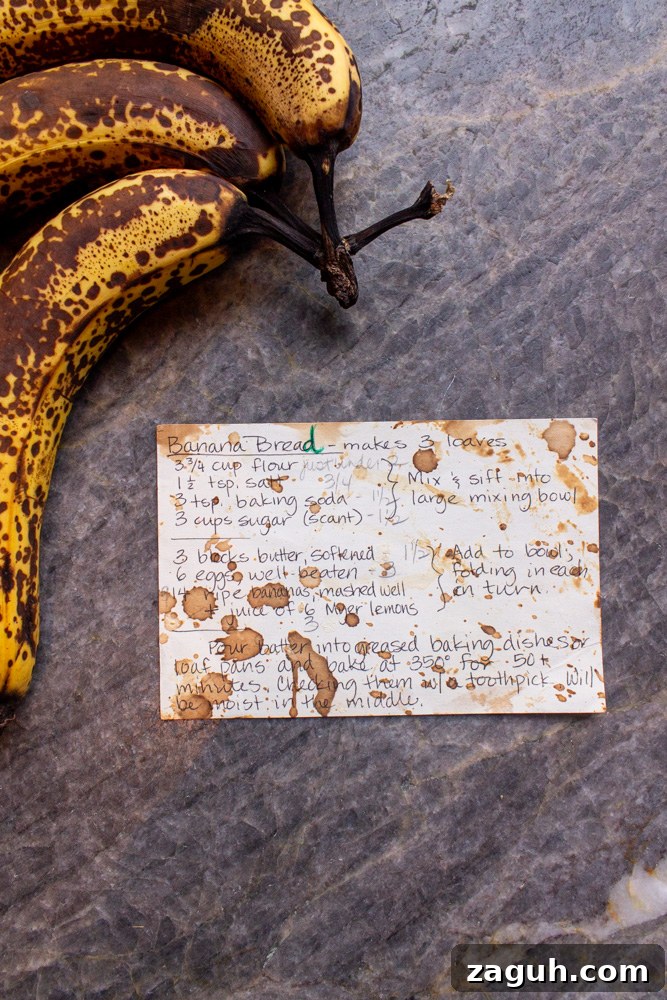 Banana Bread - makes 3 loaves
3 3/4 cup flour just under 2
1 1/2 tsp. salt 3/4 Mix & sift into
3 tsp. baking soda - 1 1/2 large mixing bowl
3 cups sugar (scant) - 1 1/2
3 blocks butter, softened 1 1/2 Add to bowl,
6 eggs, well-beaten - 3 folding in each
ripe bananas, mashed well in turn
juice of 6 Meyer lemons
3
Pour bater into greased baking dishes or
loaf pans and bake at 350° for 50+
minutes. Checking them w/ a toothpick. Will
be moist in the middle.
zaguh.com